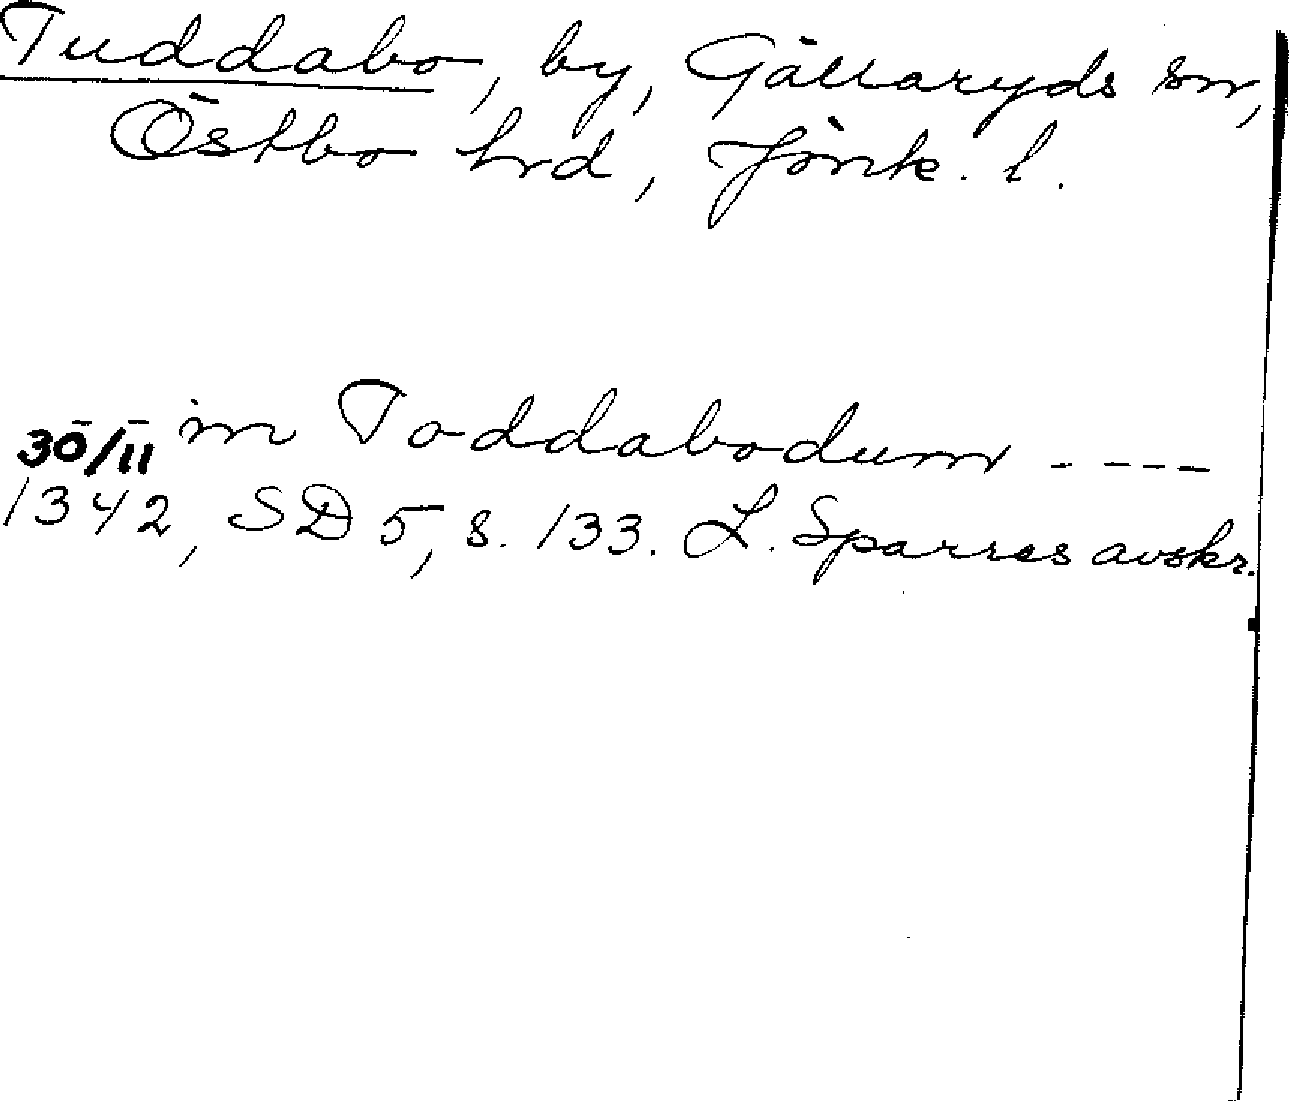 Tuddabo, by, Gällaryds sn,
Östbo hrd, Jönk. l.
in Toddabodum ----
30/11
1342, SD 5, s. 133. L. Sparres avskr.